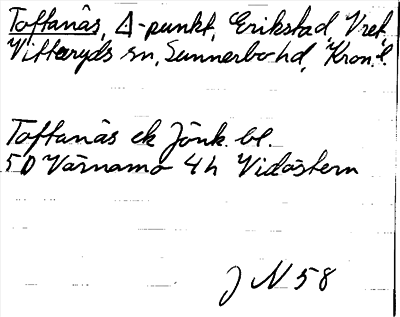 Toftanäs, Δ-punkt, Erikstad Vret,
Vittaryds sn, Sunnerbo hd, Kron. l.
Toftanäs ek Jönk. bl.
5D Värnamo 4h Vidöstern
J N 58